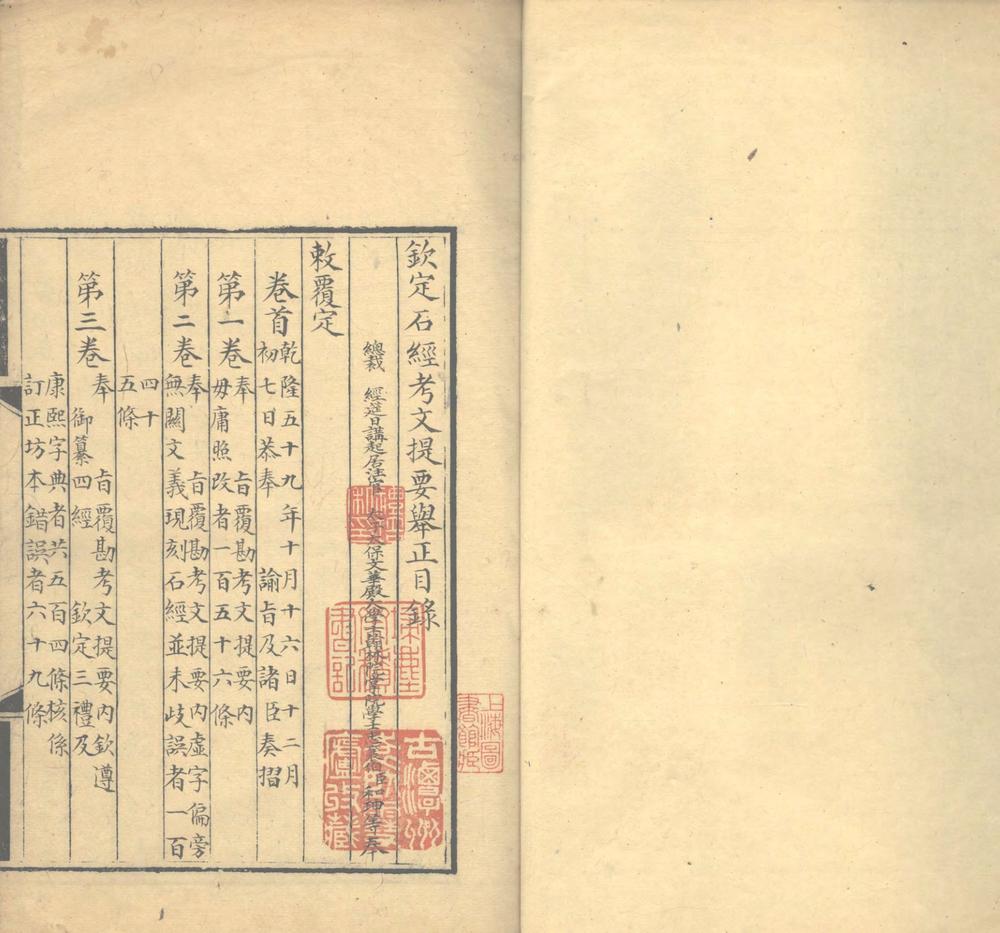 欽定石經考文提要舉正目錄
總裁 經筵日講起居注官 太子太保文華殿大學士翰林院掌院學士忠襄伯臣和珅等奉
敕覆定
卷首
乾隆五十九年十月十六日十二月
初七日恭奉 諭旨及諸臣奏摺
第一卷
奉 旨覆勘考文提要內
毋庸照改者一百五十六條
第二卷
奉 旨覆勘考文提要內虛字偏旁
無關文義現刻石經並未歧誤者一百
四十
五條
第三卷
奉 旨覆勘考文提要內欽遵
御纂四經 欽定三禮及
康熙字典者共五百四條核係
訂正坊本錯誤者六十九條
上海圖
書館藏